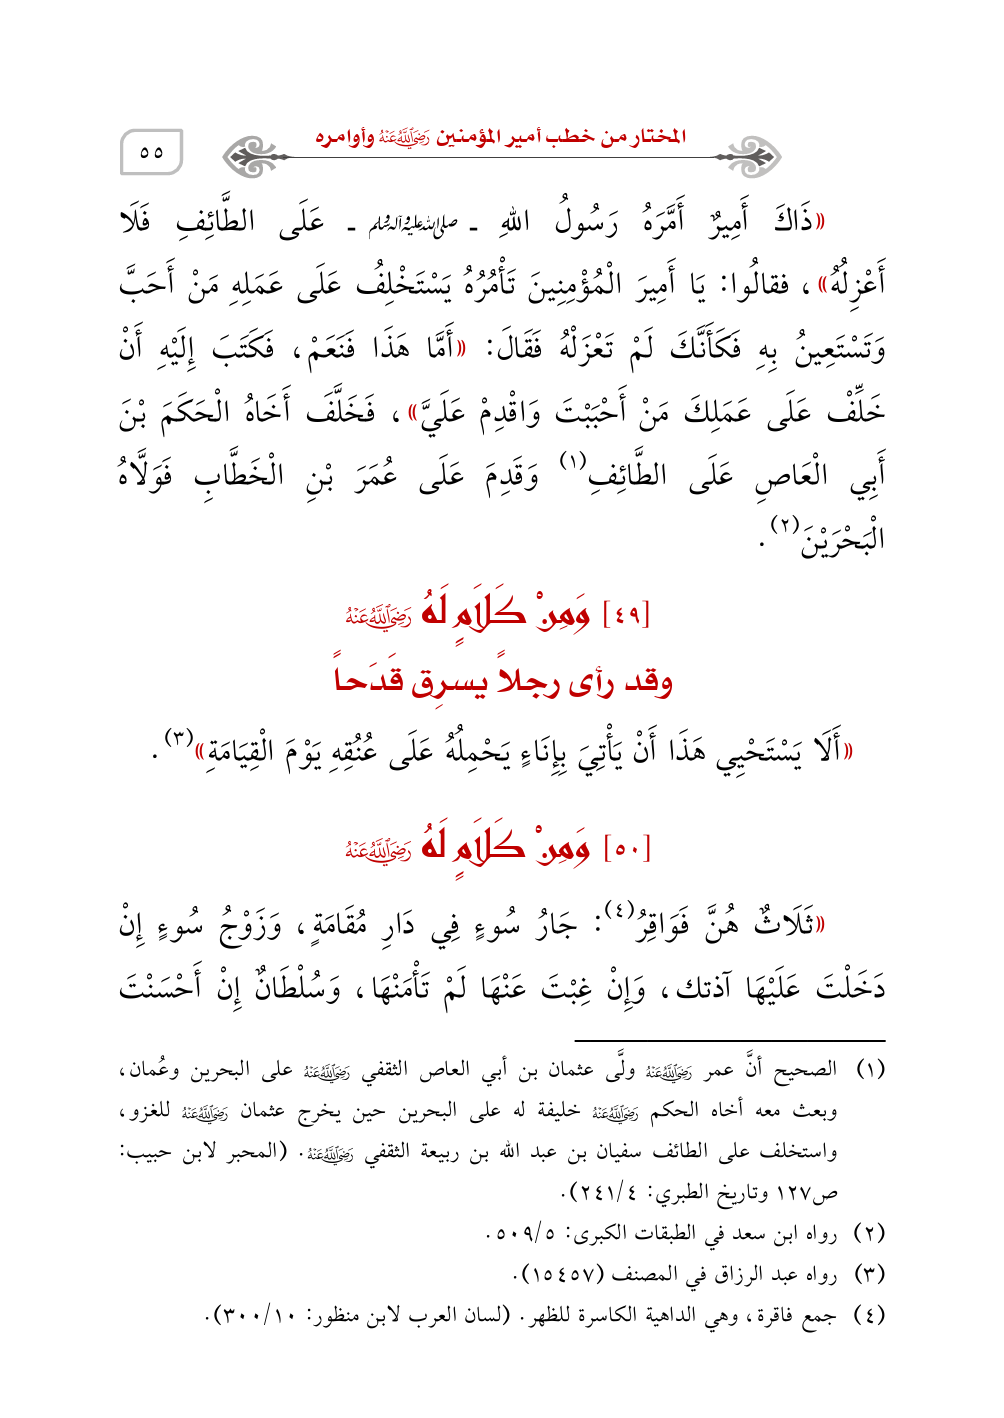 المختار من خطب أمير المؤمنين رَضِيَ اللَّهُ عَنْهُ وأوامره
٥٥
«ذَاكَ أَمِيرٌ أَمَّرَهُ رَسُولُ اللهِ ـ صلى الله عليه وآله وسلم ـ عَلَى الطَّائِفِ فَلَا
أَعْزِلُهُ»، فقالُوا: يَا أَمِيرَ الْمُؤْمِنِينَ تَأْمُرُهُ يَسْتَخْلِفُ عَلَى عَمَلِهِ مَنْ أَحَبَّ
وَتَسْتَعِينُ بِهِ فَكَأَنَّكَ لَمْ تَعْزَلْهُ فَقَالَ: «أَمَّا هَذَا فَنَعَمْ، فَكَتَبَ إِلَيْهِ أَنْ
خَلِّفْ عَلَى عَمَلِكَ مَنْ أَحْبَبْتَ وَاقْدِمْ عَلَيَّ»، فَخَلَّفَ أَخَاهُ الْحَكَمَ بْنَ
أَبِي الْعَاصِ عَلَى الطَّائِفِ(١) وَقَدِمَ عَلَى عُمَرَ بْنِ الْخَطَّابِ فَوَلَّاهُ
الْبَحْرَيْنَ(٢).
[٤٩] وَمِنْ كَلَامٍ لَهُ رَضِيَ اللَّهُ عَنْهُ
وقد رأى رجلاً يسرِق قَدَحاً
«أَلَا يَسْتَحْيِي هَذَا أَنْ يَأْتِيَ بِإِنَاءٍ يَحْمِلُهُ عَلَى عُنُقِهِ يَوْمَ الْقِيَامَةِ»(٣).
[٥٠] وَمِنْ كَلَامٍ لَهُ رَضِيَ اللَّهُ عَنْهُ
«ثَلَاثٌ هُنَّ فَوَاقِرُ(٤): جَارُ سُوءٍ فِي دَارِ مُقَامَةٍ، وَزَوْجُ سُوءٍ إِنْ
دَخَلْتَ عَلَيْهَا آذتك، وَإِنْ غِبْتَ عَنْهَا لَمْ تَأْمَنْهَا، وَسُلْطَانٌ إِنْ أَحْسَنْتَ
(١) الصحيح أنَّ عمر رَضِيَ اللَّهُ عَنْهُ ولَّى عثمان بن أبي العاص الثقفي رَضِيَ اللَّهُ عَنْهُ على البحرين وعُمان،
وبعث معه أخاه الحكم رَضِيَ اللَّهُ عَنْهُ خليفة له على البحرين حين يخرج عثمان رَضِيَ اللَّهُ عَنْهُ للغزو،
واستخلف على الطائف سفيان بن عبد الله بن ربيعة الثقفي رَضِيَ اللَّهُ عَنْهُ. (المحبر لابن حبيب:
ص١٢٧ وتاريخ الطبري: ٢٤١/٤).
(٢) رواه ابن سعد في الطبقات الكبرى: ٥٠٩/٥.
(٣) رواه عبد الرزاق في المصنف (١٥٤٥٧).
(٤) جمع فاقرة، وهي الداهية الكاسرة للظهر. (لسان العرب لابن منظور: ٣٠٠/١٠).